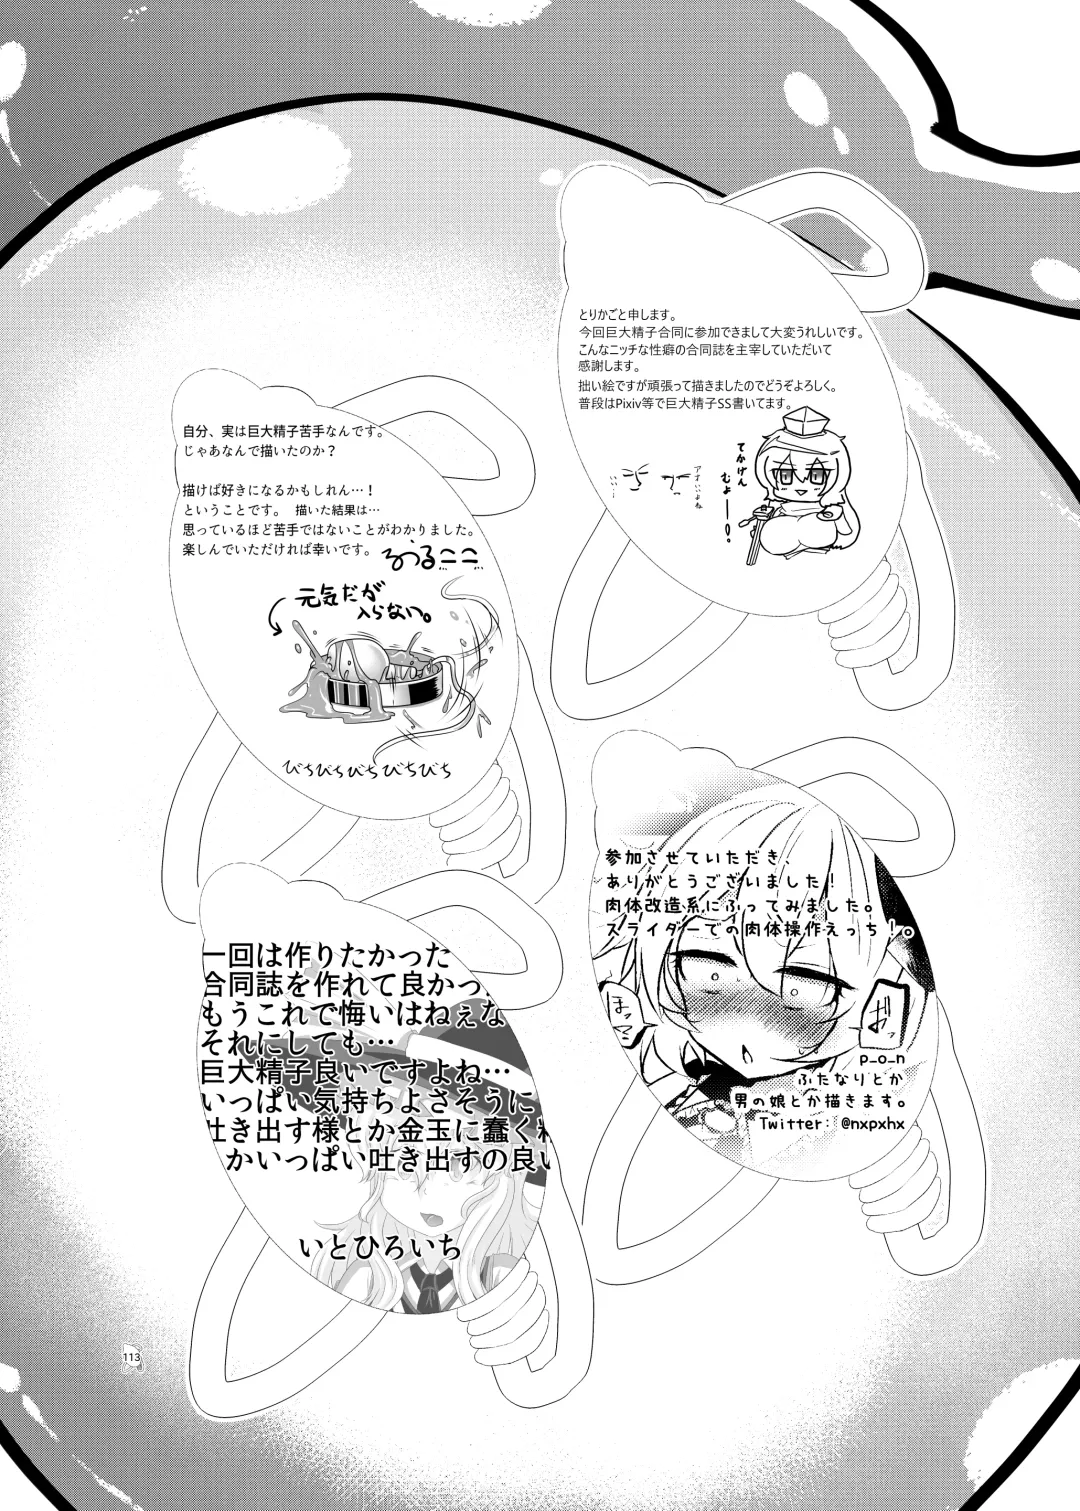 とりかごと申します。
今回巨大精子合同に参加できまして大変うれしいです。
こんなニッチな性癖の合同誌を主宰していただいて
感謝します。
拙い絵ですが頑張って描きましたのでどうぞよろしく。
普段はPixiv等で巨大精子SS書いてます。
てかげん
むよー!o。
自分、実は巨大精子苦手なんです。
じゃあなんで描いたのか?
描けば好きになるかもしれん…!
ということです。 描いた結果は…
思っているほど苦手ではないことがわかりました。
楽しんでいただければ幸いです。
元気だが
入らない。
びちびちびちびちびち
参加させていただき、
ありがとうございました!
肉体改造系にふってみました。
スライダーでの肉体操作えっち!。
p_o_n
ふたなりとか
男の娘とか描きます。
Twitter: @nxpxhx
一回は作りたかった
合同誌を作れて良かっ
もうこれで悔いはねぇな
それにしても…
巨大精子良いですよね…
いっぱい気持ちよさそうに
吐き出す様とか金玉に蠢く
かいっぱい吐き出すの良い
いとひろいち
113